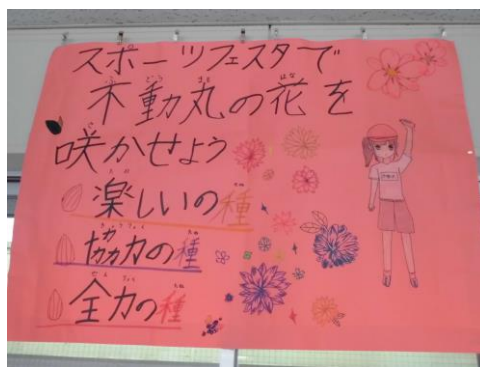 スポーツフェスタで
不動丸の花を
咲かせよう
楽しいの種
協力の種
全力の種